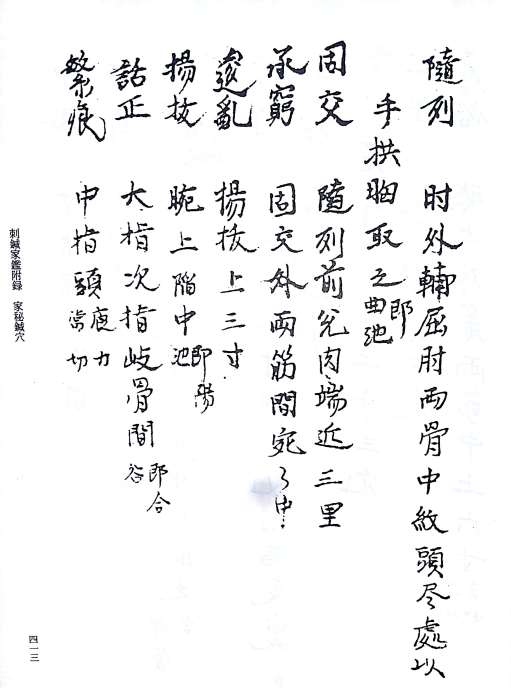 隨列　肘外輔屈肘両骨中紋頭尽處以
手拱胸取之即曲池
周交　隨列前兌肉端近三里
承窮　周交外両筋間宛々中
邊亂　揚抜上三寸
揚抜　腕上陷中即陽池
話正　大指次指岐骨間即合谷
繁痕　中指頭應力當切
刺鍼家鑑附録　家秘鍼穴
四一三